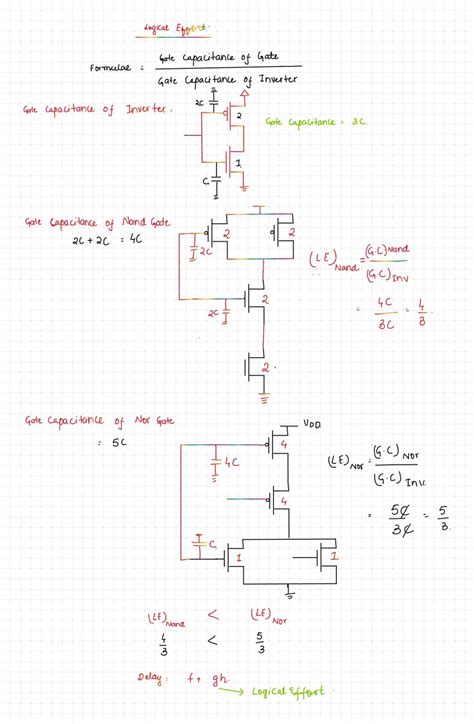 Logical Effort.
Formulae = Gate Capacitance of Gate
Gate Capacitance of Inverter
Gate Capacitance of Inverter.
2C
2
Gate Capacitance = 3C.
1
C
Gate Capacitance of Nand Gate
2C + 2C = 4C
2
2
2C
(LE)Nand = (G.C)Nand
(G.C)Inv
2C
2
= 4C = 4
3C 3.
2
Gate Capacitance of Nor Gate
= 5C
VDD
4
4C
(LE)Nor = (G.C)Nor
(G.C)Inv.
4
= 5C = 5
3C 3.
C
1
1
(LE)Nand < (LE)Nor
4 < 5
3 3
Delay: f + gh.
→ Logical Effort